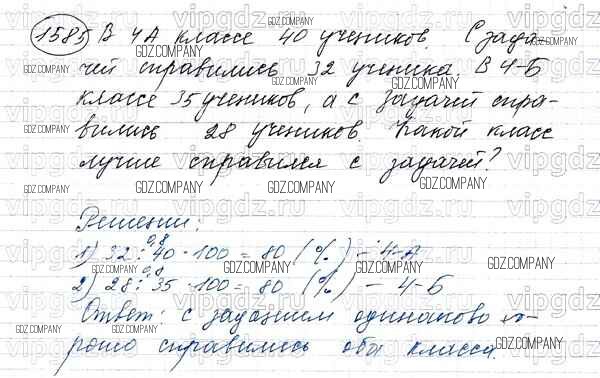 1585 В 4А классе 40 учеников. С зада-
чей справились 32 ученика. В 4-Б
классе 35 учеников, а с задачей спра-
вились 28 учеников. Какой класс
лучше справился с задачей?
Решение:
0,8
1) 32 : 40 · 100 = 80 (%) – 4-А
0,8
2) 28 : 35 · 100 = 80 (%) – 4-Б
Ответ: с заданием одинаково хо-
рошо справились оба класса.